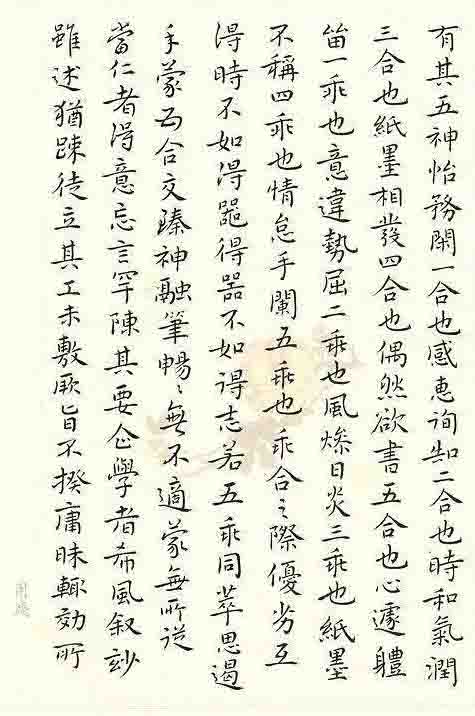 有其五神怡務閑一合也感惠詢知二合也時和氣潤
三合也紙墨相發四合也偶然欲書五合也心遽體
留一乖也意違勢屈二乖也風燥日炎三乖也紙墨
不稱四乖也情怠手闌五乖也乖合之際優劣互
得時不如得器得器不如得志若五乖同萃思遏
手蒙五合交臻神融筆暢〻無不適蒙無所從
當仁者得意忘言罕陳其要企學者希風叙妙
雖述猶踈徒立其工未敷厥旨不揆庸昧輒効所